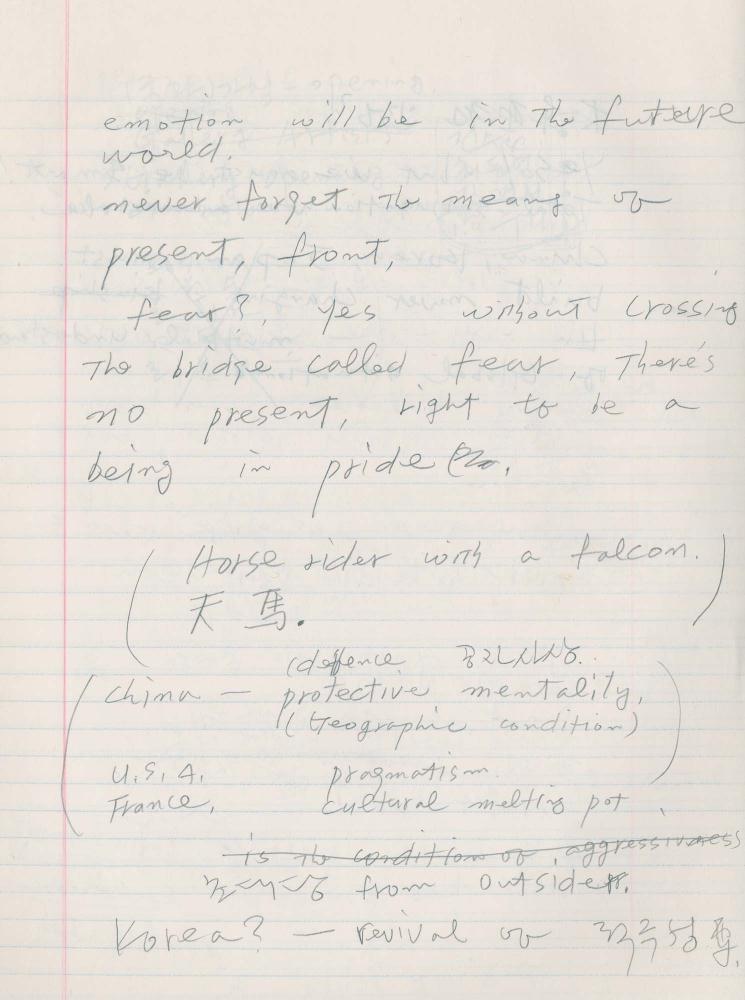 emotion will be in the future
world.
never forget the means of
present, front,
fear?, yes without crossing
the bridge called fear, there's
no present, right to be a
being in pride
(Horse rider with a falcon.)
天 馬.
(deffence
China — protective mentality,
(Geographic condition)
U.S.A. pragmatism.
France, cultural melting pot.
is the condition of, aggressiveness
from outside.
Korea? — revival of